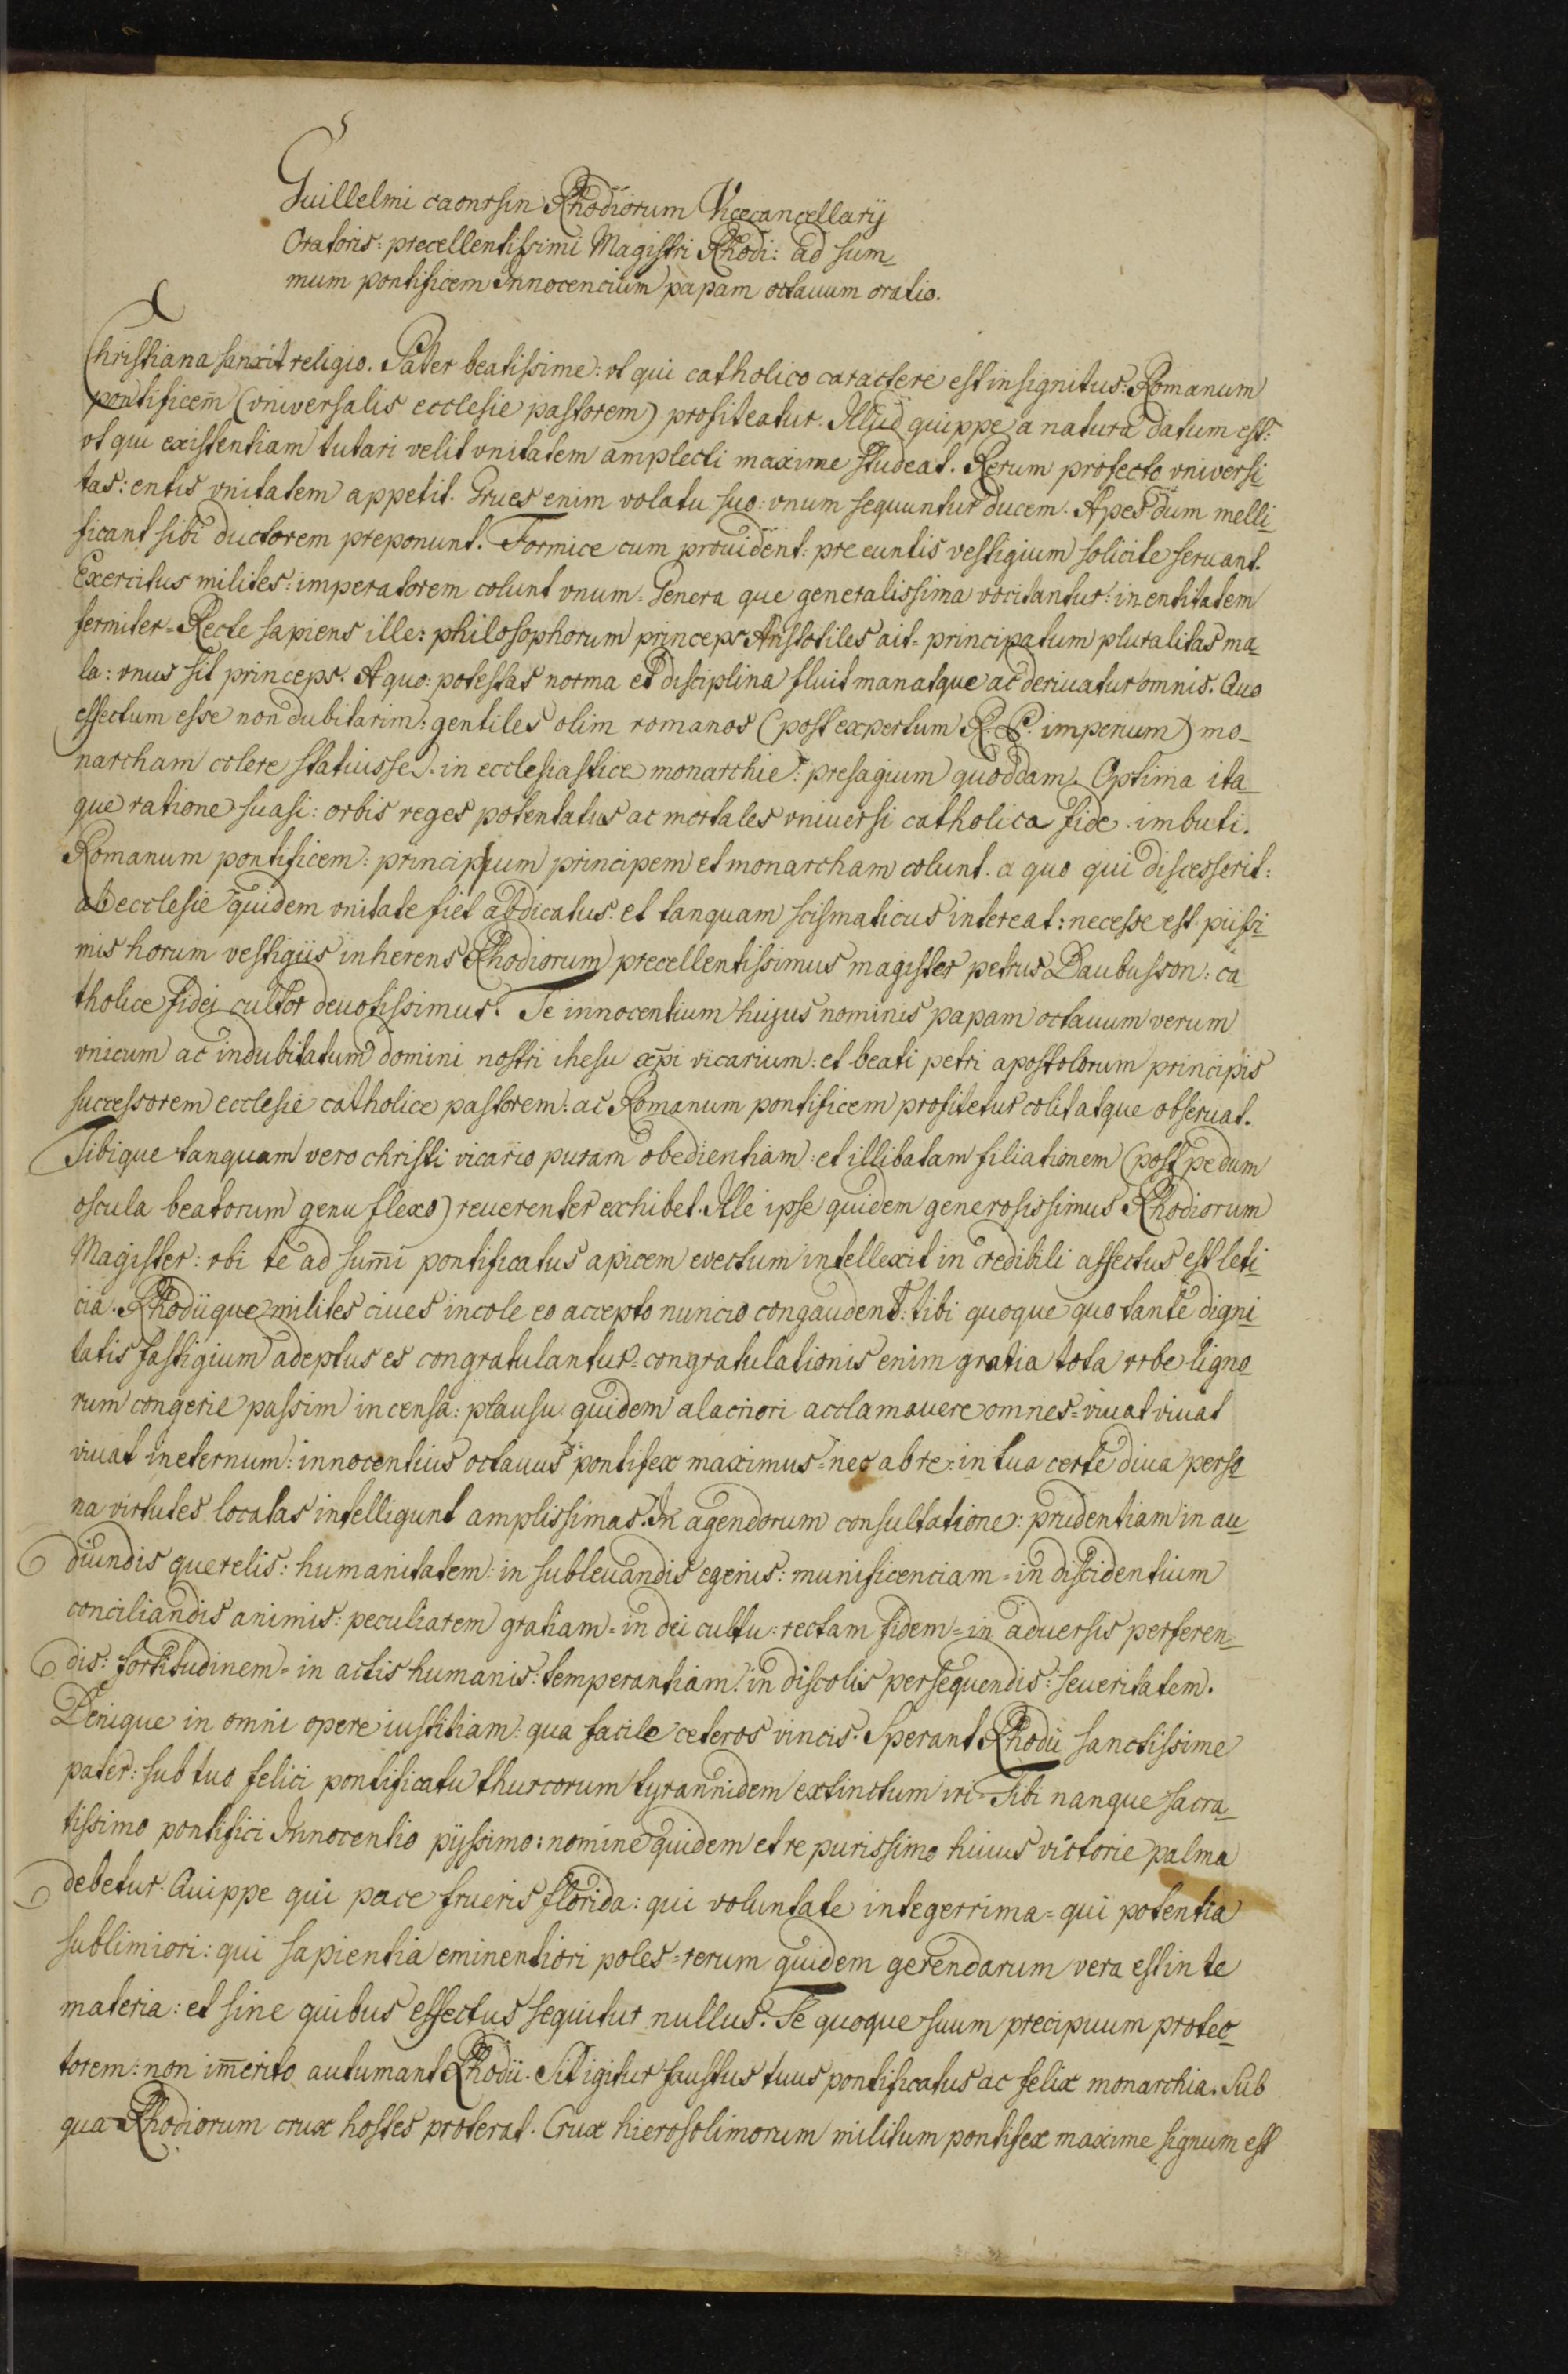 Guillelmi caonrsin Rhodiorum Vicecancellarij
Oratoris: precellentissimi Magistri Rhodi: ad sum_
mum pontificem Innocencium papam octauum oratio.
Christiana sanxit religio. Pater beatissime: vt qui catholico caractere est insignitus: Romanum
pontificem (vniversalis ecclesie pastorem) profiteatur. Illud quippe a natura datum est:
vt qui existentiam tutari velit vnitatem amplecti maxime studeat. Rerum profecto vniversi
tas: entis vnitatem appetit. Grues enim volatu suo: vnum sequuntur ducem. Apes dum melli_
ficant sibi ductorem preponunt. Formice cum prouident: pre euntis vestigium solicite seruant.
Exercitus milites: imperatorem colunt vnum. Genera que generalissima vocitantur: in entitatem
fermiter = Recte sapiens ille: philosophorum princeps Aristotiles ait = principatum pluralitas ma_
la: vnus sit princeps. A quo: potestas norma et disciplina fluit manatque ac deriuatur omnis. Quo
effectum esse non dubitarim: gentiles olim romanos (post expertum R. P. imperium) mo_
narcham colere statuisse. in ecclesiastice monarchie: presagium quoddam. Optima ita_
que ratione suasi: orbis reges potentatus ac mortales vniuersi catholica fide imbuti.
Romanum pontificem: principum principem et monarcham colunt. a quo qui discesserit:
ab ecclesie quidem vnitate fiet abdicatus. et tanquam scismaticus intereat: necesse est. piissi_
mis horum vestigiis inherens Rhodiorum precellentissimus magister petrus Daubusson: ca
tholice fidei cultor deuotissimus. Te innocentium hujus nominis papam octauum verum
vnicum ac indubitatum domini nostri ihesu xp̄i vicarium: et beati petri apostolorum principis
successorem ecclesie catholice pastorem: ac Romanum pontificem profitetur colit atque obseruat.
Tibique tanquam vero christi vicario puram obedientiam: et illibatam filiationem (post pedum
oscula beatorum genu flexo) reuerenter exhibet. Ille ipse quidem generosissimus Rhodiorum
Magister: vbi te ad sum̄i pontificatus apicem evectum intellexit in credibili affectus est leti_
cia. Rhodiique milites ciues incole eo accepto nuncio congaudent: tibi quoque quo tante digni_
tatis fastigium adeptus es congratulantur = congratulationis enim gratia tota vrbe ligno_
rum congerie passim incensa: plausu quidem alacriori acclamauere omnes = viuat viuat
viuat in eternum: innocentius octauus pontifex maximus = nec ab re: in tua certe diua perso_
na virtutes locatas intelligunt amplissimas. In agendorum consultatione: prudentiam in au_
diundis querelis: humanitatem: in subleuandis egenis: munificenciam = in discidentium
conciliandis animis: peculiarem gratiam = in dei cultu: rectam fidem = in aduersis perferen_
dis: fortitudinem = in actis humanis: temperantiam: in discolis persequendis: seueritatem.
Denique in omni opere iustitiam: qua facile ceteros vincis. Sperant Rhodii sanctissime
pater: sub tuo felici pontificatu thurcorum tyrannidem extinctum iri = Tibi nanque sacra_
tissimo pontifici Innocentio pijssimo: nomine quidem et re purissimo huius victorie palma
debetur. Quippe qui pace frueris florida: qui voluntate integerrima = qui potentia
sublimiori: qui sapientia eminentiori poles = rerum quidem gerendarum vera est in te
materia: et sine quibus effectus sequitur nullus. Te quoque suum precipuum protec_
torem: non im̄erito autumant Rhodii. Sit igitur faustus tuus pontificatus ac felix monarchia. Sub
qua Rhodiorum crux hostes proterat. Crux hierosolimorum militum pontifex maxime signum est